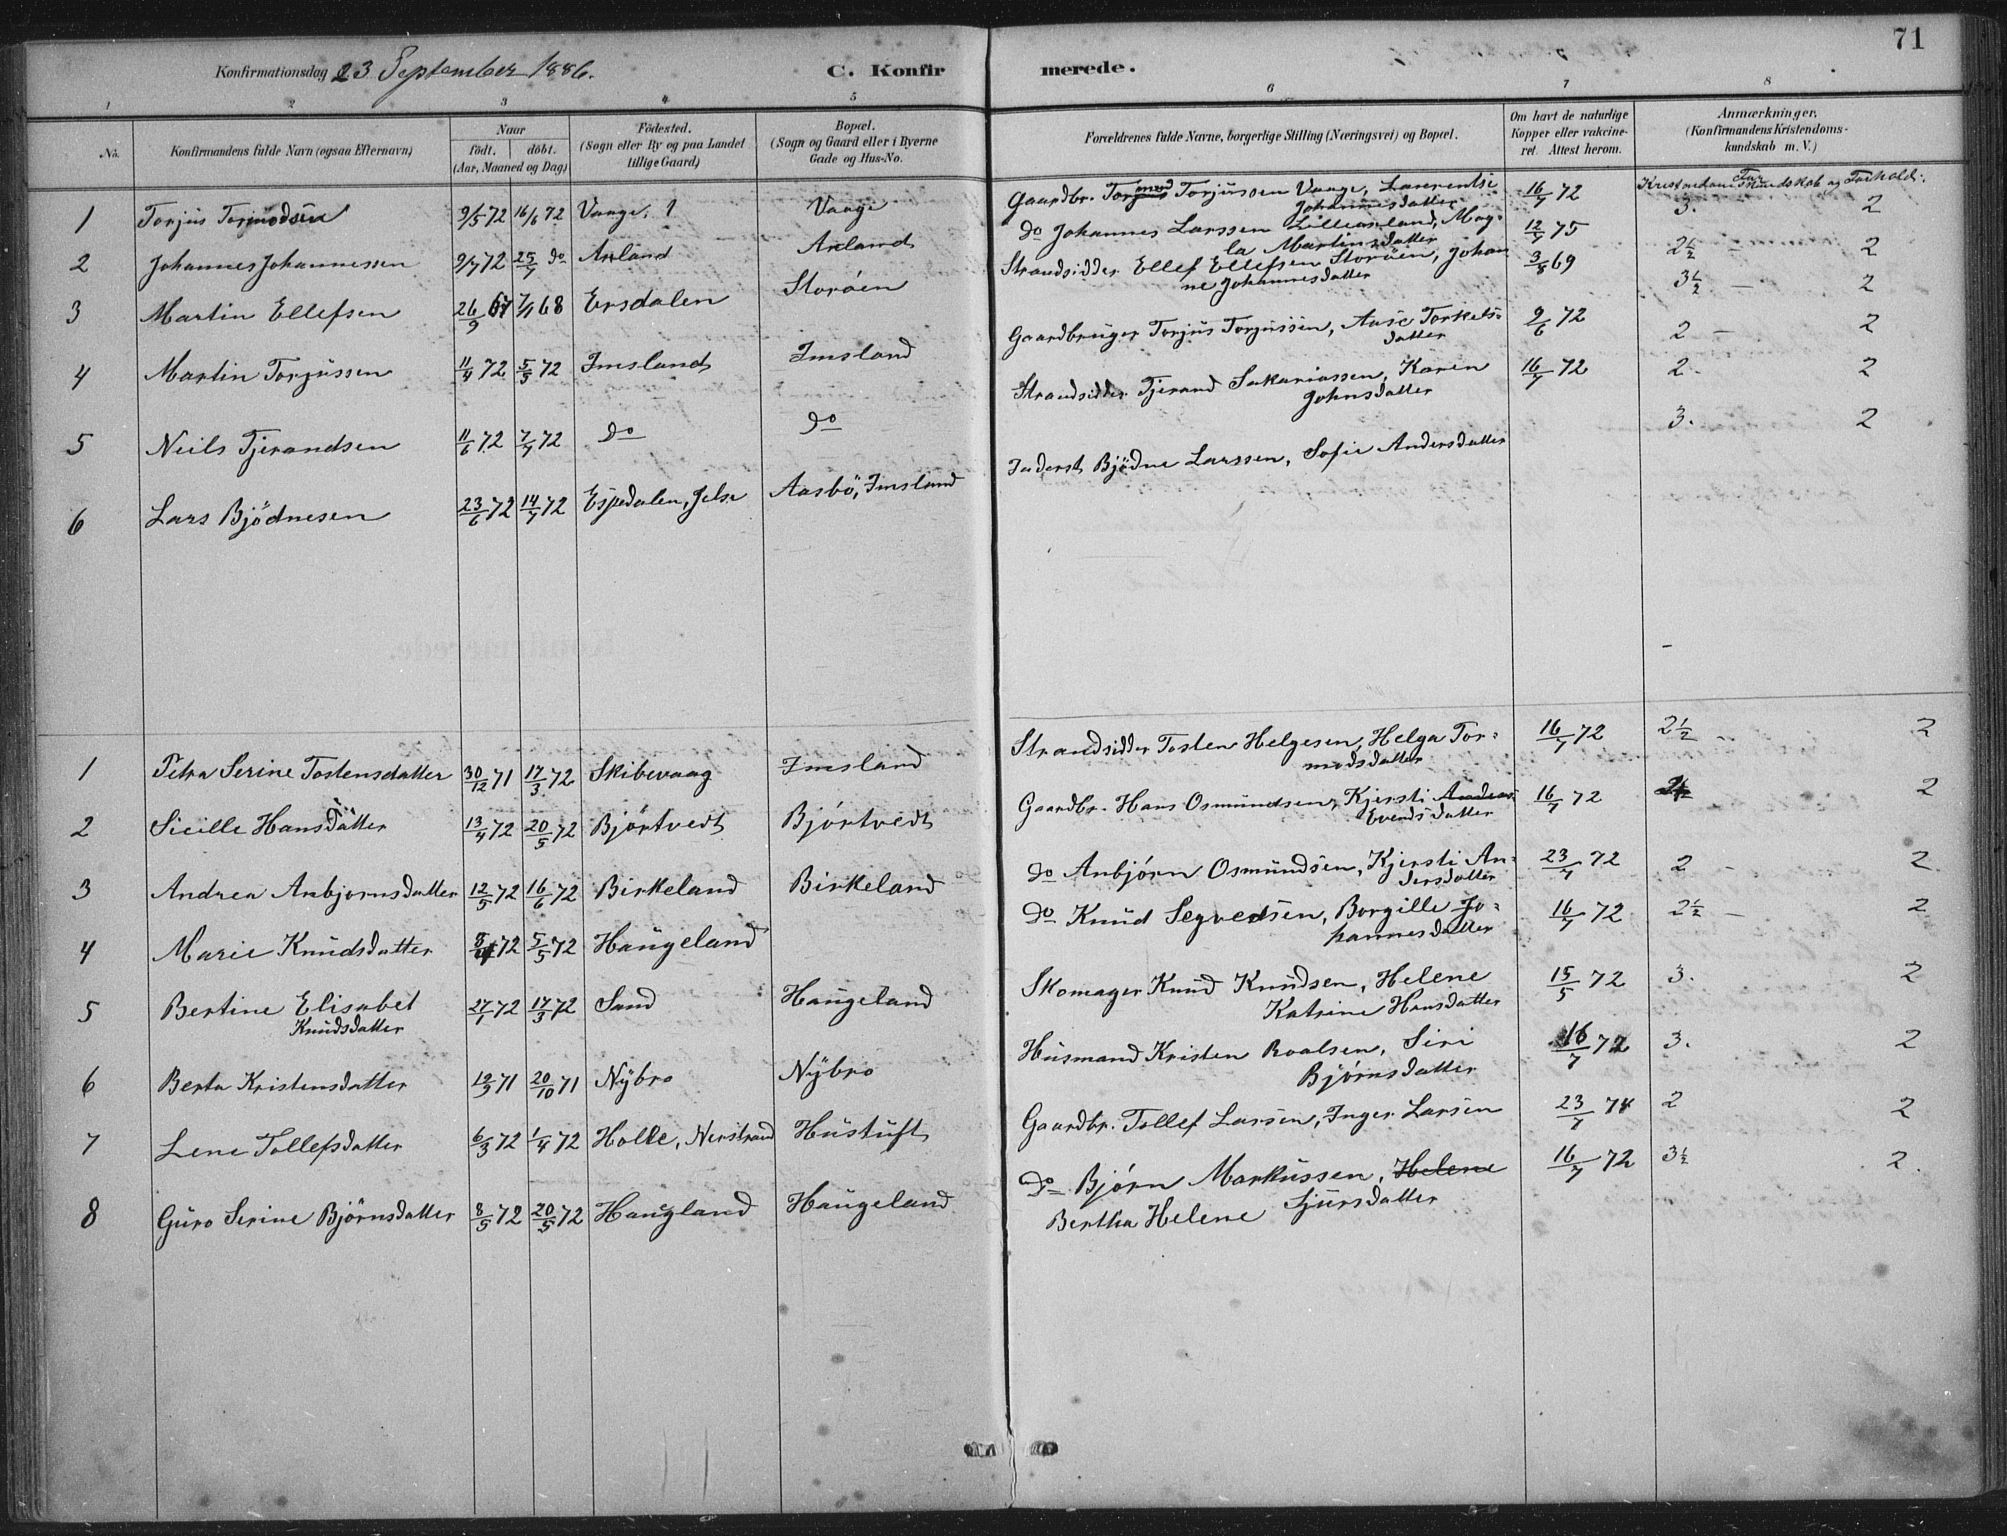 71
Konfirmationsdag 23 September 1886. C. Konfirmerede.
1 2 3 4 5 6 7 8
No. Konfirmandens fulde Navn (ogsaa Efternavn) Naar födt. döbt. (Aar, Maaned og Dag) Födested. (Sogn eller By og paa Landet tillige Gaard) Bopæl. (Sogn og Gaard eller i Byerne Gade og Hus-No. Forældrenes fulde Navne, borgerlige Stilling (Næringsvei) og Bopæl. Om havt de naturlige Kopper eller vakcineret. Attest herom. Anmærkninger. (Konfirmandens Kristendomskundskab m. V.)
Kristendomskundskab og Forhold:
1 Torjus Tormodsen 9/5 72 16/6 72 Vaage, 1 Vaage Gaardbr. Tormod Torjussen Vaage, Laurentse Johannesdatter 16/7 72 3. 2
2 Johannes Johannessen 9/7 72 25/7 do Arland Arland do Johannes Larssen Lillearland, Magla Martinsdatter 12/7 75 2½ — 2
3 Martin Ellefsen 26/9 67 7/1 68 Ersdalen Storöen Strandsidder Ellef Ellefsen Storöen, Johanne Johannesdatter 3/8 69 3½ — 2
4 Martin Torjussen 11/4 72 5/5 72 Imsland Imsland Gaardbruger Torjus Torjussen, Aase Torkelsdatter 9/6 72 2 — 2
5 Neils Tjerandsen 11/6 72 7/7 72 do do Strandsidder Tjerand Sakariassen, Karen Johnsdatter 16/7 72 2 - 2
6 Lars Bjödnesen 23/6 72 14/7 72 Espedalen, Jelse Aasbö, Imsland Inderst Bjödne Larssen, Sofie Andersdatter 3. 2
1 Petra Serine Tostensdatter 30/12 71 17/3 72 Skibevaag Imsland Strandsidder Tosten Helgesen, Helga Tormodsdatter 16/7 72 2½ - 2
2 Sicille Hansdatter 13/4 72 20/5 72 Bjørtvedt Bjørtvedt Gaardbr. Hans Osmundsen, Kjersti Anders Evendsdatter 16/7 72 2
3 Andrea Anbjornsdatter 12/5 72 16/6 72 Birkeland Birkeland do Anbjørn Osmundsen, Kjersti Andersdatter 23/7 72 2 - 2
4 Marie Knudsdatter 8/4 72 5/5 72 Haugeland do Knud Segvedsen, Borgille Johannesdatter 16/7 72 2½ — 2
5 Bertine Elisabet Knudsdatter 27/1 72 17/3 72 Sand Haugeland Skomager Knud Knudsen, Helene Katrine Hansdatter 15/5 72 3. 2
6 Berta Kristensdatter 71 20/10 71 Nybro Nybro Husmand Kristen Roalsen, Siri Bjørnsdatter 16/7 72 3. 2
7 Lene Tollefsdatter 6/3 72 1/4 72 Holle, Nerstrand Hustuft Gaardbr. Tollef Larsen, Inger Larsen 23/7 74 2 2
8 Guro Serine Bjørnsdatter 8/5 72 20/5 72 Haugland Haugeland do Bjørn Markussen, Helene Bertha Helene Sjursdatter 16/7 72 3½ 2.